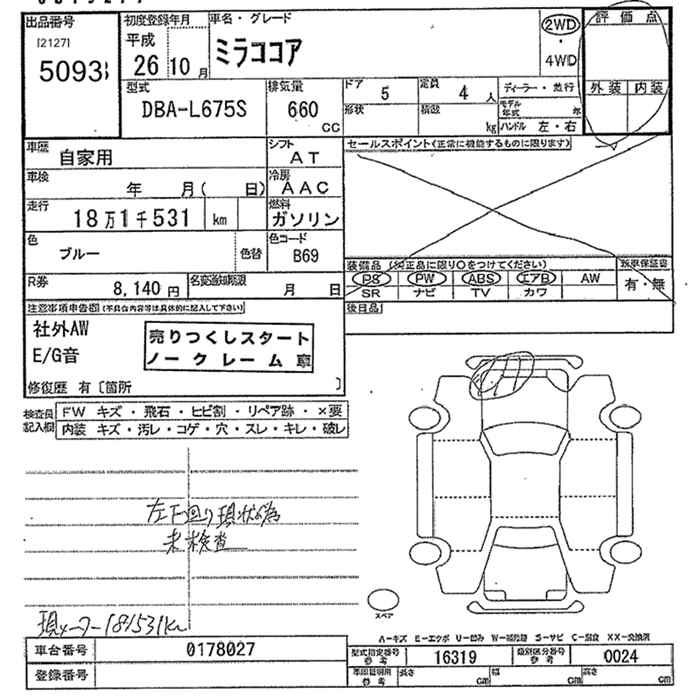 出品番号
[2127]
5093
初度登録年月
平成
26 10 月
車名・グレード
ミラココア
2WD
・
4WD
評価点
外装 内装
型式
DBA-L675S
排気量
660
CC
ドア 5
定員 4 人
ディーラー・並行
形状
積載 kg
モデル年式 年
ハンドル 左・右
車歴
自家用
シフト
AT
セールスポイント(正常に機能するものに限ります)
車検
年 月( 日)
冷房
AAC
走行
18万1千531 km
燃料
ガソリン
色
ブルー
色替
色コード
B69
装備品 (※正品に限り○をつけてください)
PS PW ABS エアB AW
SR ナビ TV カワ
新車保証書
有・無
R券
8,140 円
名変通知期限
月 日
後日品
注意事項申告欄(不具合内容等は具体的に記入して下さい)
社外AW
E/G音
売りつくしスタート
ノークレーム車
修復歴 有〔箇所 〕
検査員
記入欄
FW キズ・飛石・ヒビ割・リペア跡・×要
内装 キズ・汚レ・コゲ・穴・スレ・キレ・破レ
左下回り現状為
未検査
現メーター181531km
スペア
車台番号
0178027
登録番号
A-キズ E-エクボ U-凹み W-補修跡 S-サビ C-腐食 XX-交換済
型式指定番号
参考
16319
類別区分番号
参考
0024
車両証明用
参考
長さ cm
幅 cm
高さ cm